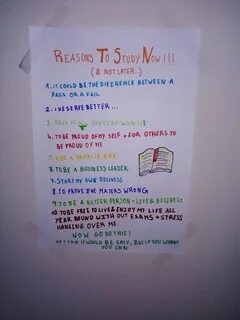 REASONS TO STUDY NOW!!!
(& NOT LATER..)
1. IT COULD BE THE DIFFERENCE BETWEEN A
PASS OR A FAIL
2. I DESERVE BETTER...
3. THIS IS ALL
4. TO BE PROUD OF MY SELF + FOR OTHERS TO
BE PROUD OF ME
5. FOR A
6. TO BE A BUSINESS LEADER.
7. START MY OWN BUSINESS
8. TO PROVE THE HATERS WRONG
9. TO BE A BETTER PERSON - LIFE & BUSINESS
10. TO BE FREE TO LIVE & ENJOY MY LIFE ALL
YEAR ROUND WITH OUT EXAMS + STRESS
HANGING OVER ME
NOW GO DO THIS!
IT WOULD BE EASY, BUT IF YOU
YOU CAN